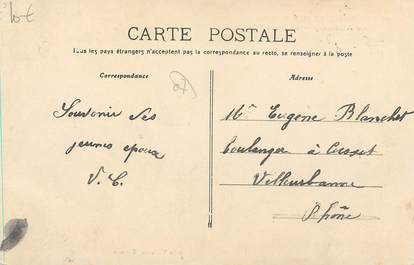 lot
CARTE POSTALE
Tous les pays étrangers n'acceptent pas la correspondance au recto, se renseigner à la poste
Correspondance
Adresse
Souvenir des
jeunes époux
V. C.
Mr Eugène Blanchet
boulanger à Cusset
Villeurbanne
Rhône